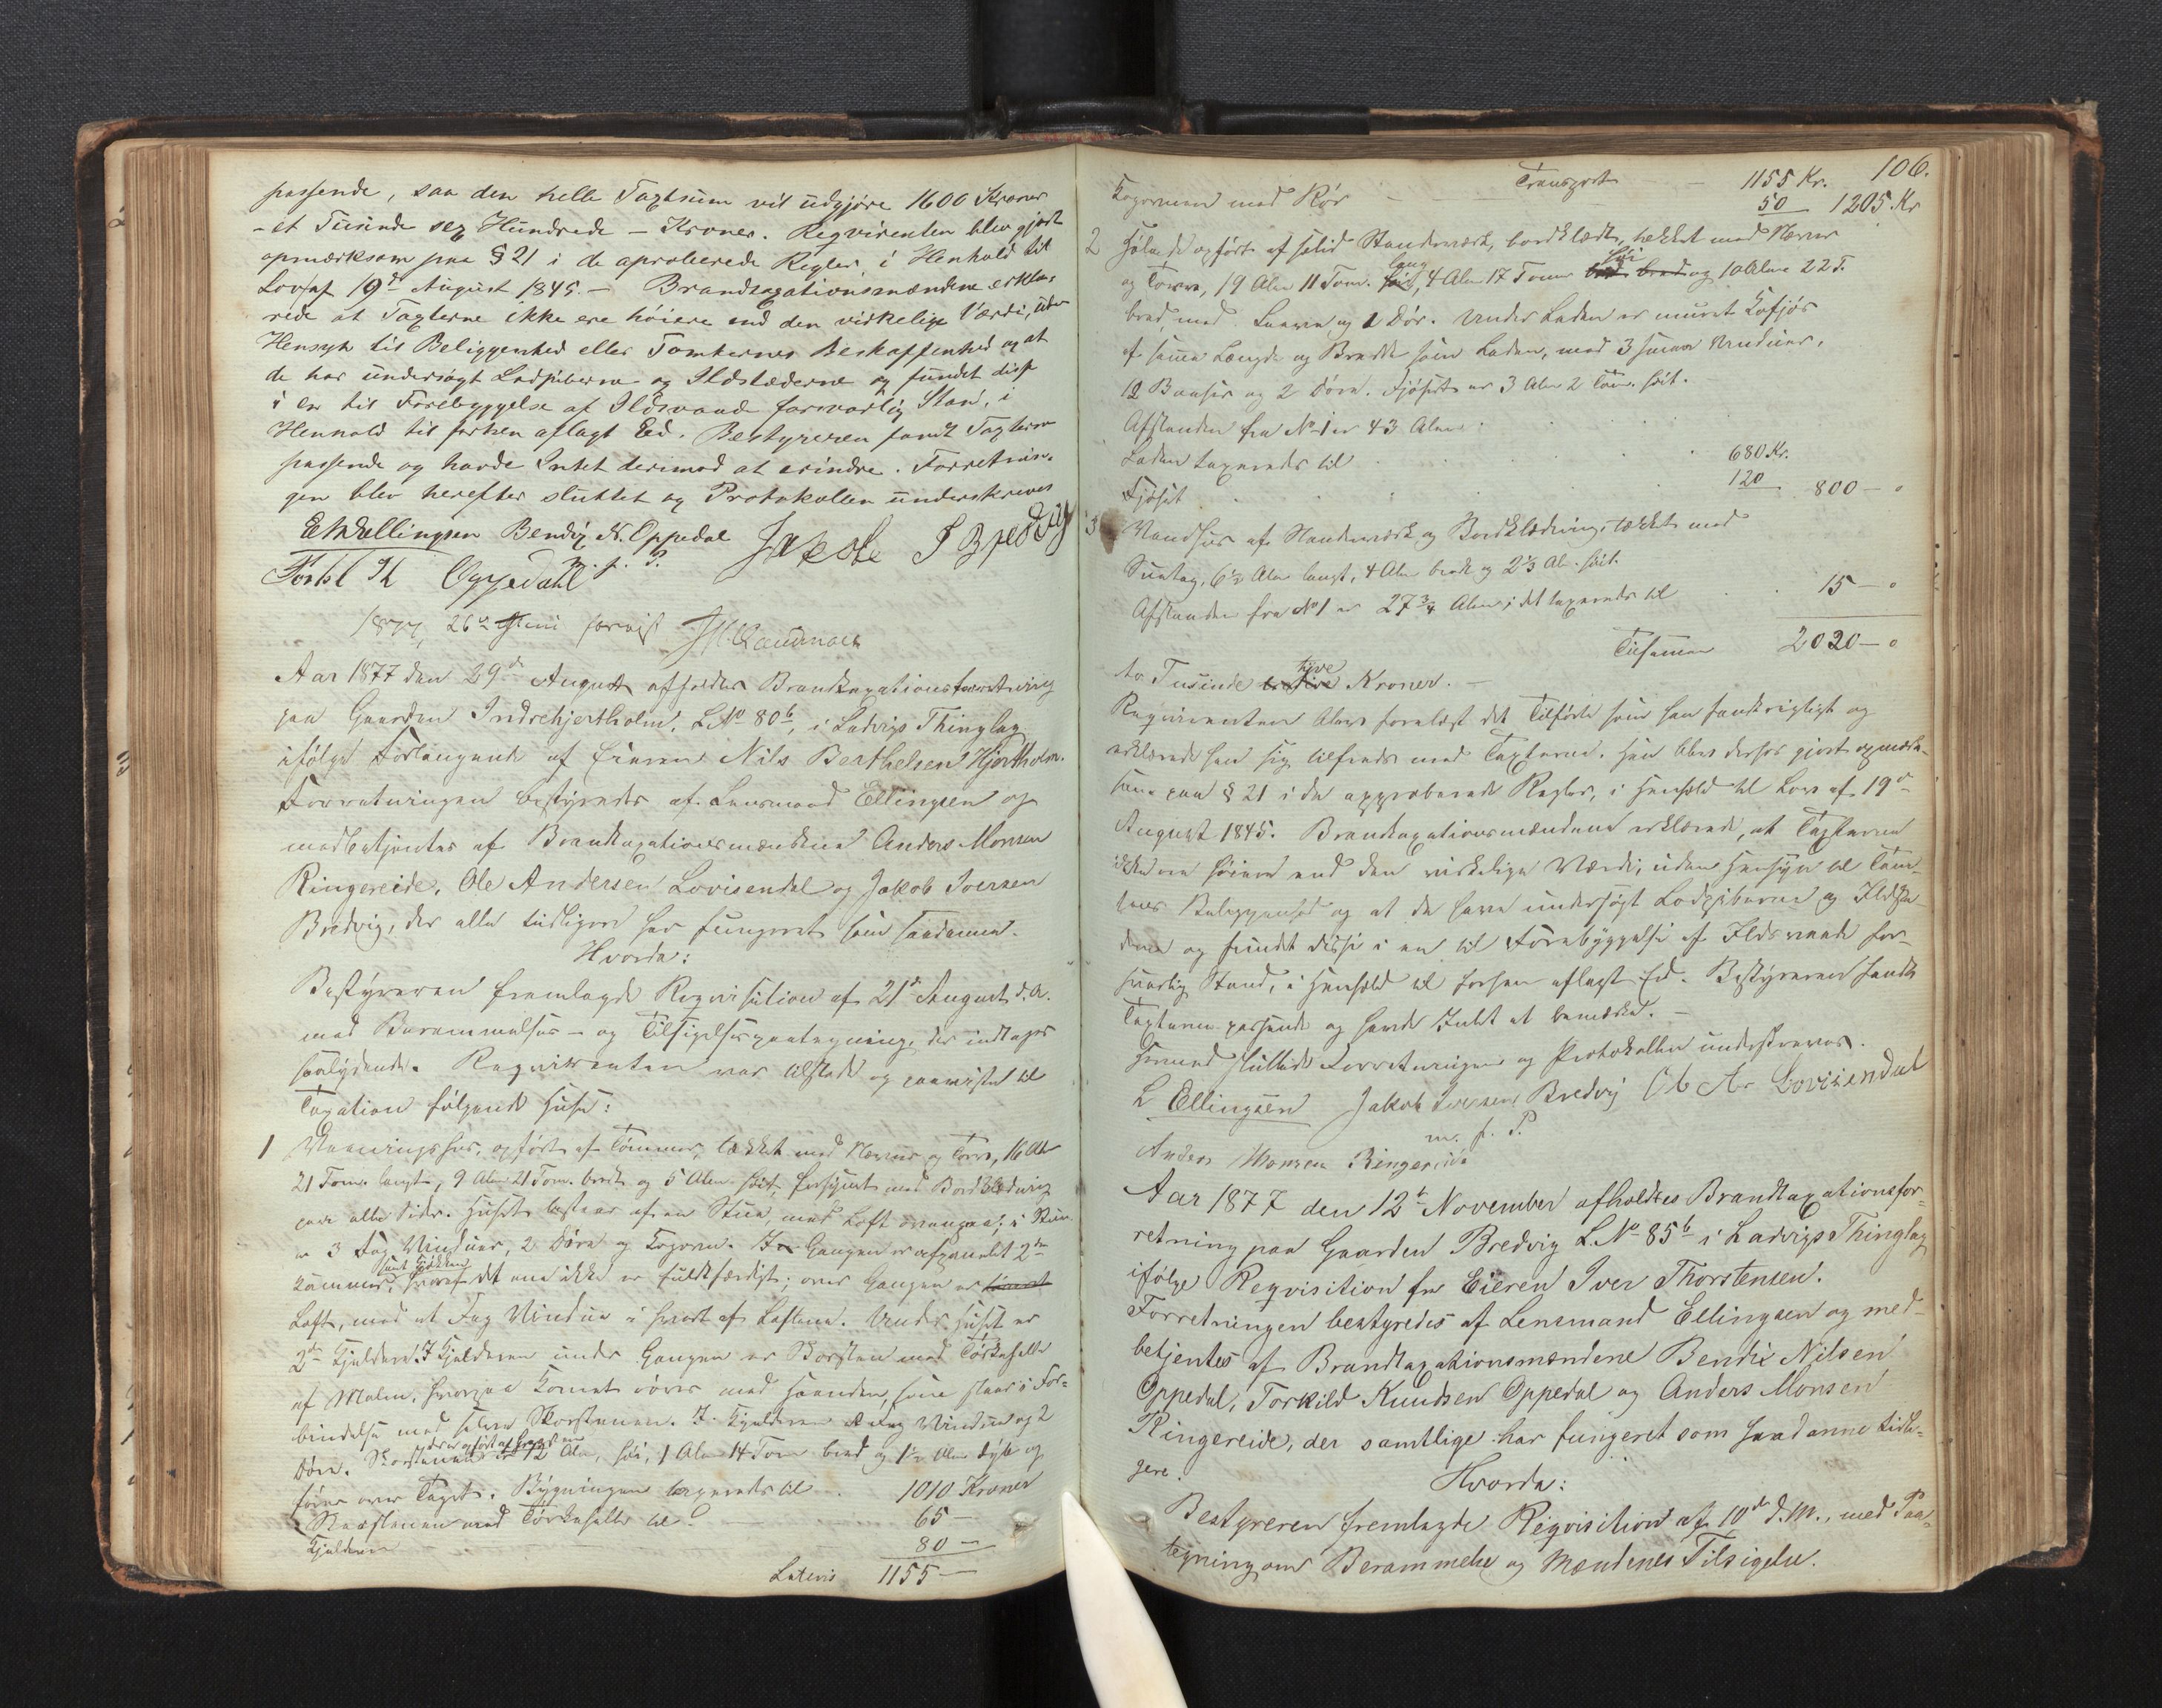 passende, saa den helle Taxtsum vil udgjøre 1600 Kroner
- et Tusinde sex Hundrede - Kroner. Reqvirenten blev gjort
opmærksom paa § 21 i de aproberede Regler, i Henhold til
Lov af 19de August 1845. - Brandtaxationsmændene erklæ-
rede at Taxterne ikke ere høiere end den virkelige Værdi, uden
Hensyn til Beliggenhed eller Tomternes Beskaffenhed og at
de har undersøgt Ladpiberne og Ildstæderne og fundet disse
i en til Forebyggelse af Ildsvaade forsvarlig Stand, i
Henhold til forhen aflagt Ed. Bestyreren fandt Taxterne
passende og havde Intet derimod at erindre. Forretnin-
gen blev herefter sluttet og Protokollen underskreven
Ellingsen Bendix N. Oppedal Jakob I Bredvig
Torkel K Oppedahl m. f. P.
1877, 26de Juni forevist
Aar 1877 den 29de August afholdtes Brandtaxationsforretning
paa Gaarden Indrehjertholm, L. No 80b, i Ladvigs Thinglag
ifølge Forlangende af Eieren Nils Berthelsen Hjortholm.
Forretningen bestyredes af Lensmand Ellingsen og
medbetjentes af Brandtaxationsmændene Anders Monsen
Ringereide, Ole Andersen Lovisendal og Jakob Iversen
Bredvig, der alle tidligere har fungeret som saadanne.
Hvorda:
Bestyreren fremlagde Reqvisition af 21de August d. A.
med Berammelses- og Tilsigelsespaategning, der indtages
saalydende. Reqvirenten var tilstede og paaviste til
Taxation følgende Huse:
1 Vaaningshus, opført af Tømmer, tækket med Næver og Torv, 16 Al.
21 Tom. langt, 9 Alen 21 Tom. bredt og 5 Alen høit, forsynet med Bordklædning
paa alle Sider. Huset bestaar af en Stue, med Loft ovenpaa; i Stuen
er 3 Fag Vinduer, 2 Døre og Kogovn. I Gangen er afpanelet 2de
Kammer, samt Kjøkken hvoraf det ene ikke er fuldtfærdigt; over Gangen er
Loft, med et Fag Vindue i hvert af Loftene. Under Huset er
2de Kjeldere. I Kjelderen under Gangen er Skorsten med Tørkehelle
af Malm, hvorpaa Kornet røres med Haanden, som staar i For-
bindelse med selve Skorstenen. I Kjelderen Fag Vindue og 2
Døre. Skorstenen der opført af er 12 Alen, høi, 1 Alen 14 Tom bred og 1½ Alen dyb og
fører over Taget. Bygningen taxeredes til 1010 Kroner
Skorstenen med Tørkehelle til 65 -
Kjelderen 80 -
Lateris 1155 -
106.
Transport - 1155 Kr.
Kogovnen med Rør 50 1205 Kr
2 Høelade opført af solid Standerværk, bordklædt, tækket med Næver
og Torv, 19 Alen 11 Tom. lang, 4 Alen 17 Tomer høi og 10 Alen 22 T.
bred, med Laave og 1 Dør. Under Laden er muret Kofjøs
af samme Længde og Bredde som Laden, med 3 smaa Vinduer,
12 Baaser og 2 Døre. Fjøset er 3 Alen 2 Tom. høit.
Afstanden fra No 1 er 43 Alen.
Laden taxeredes til 680 Kr.
Fjøset 120 800 - "
3 Vandhus af Standerværk og Bordklædning, tækket med
Suntag, 6½ Alen langt, 4 Alen bredt og 2⅓ Al. høit.
Afstanden fra No 1 er 27¾ Alen; det taxeredes til 15 - "
Tilsammen 2020 - "
to Tusinde tyve Kroner. -
Reqvirenten blev forelæst det Tilførte som han fandt rigtigt og
erklærede han sig tilfreds med Taxterne. Han blev derhos gjort opmærk-
som paa § 21 i de approberede Regler, i Henhold til Lov af 19de
August 1845. Brandtaxationsmændene erklærede, at Taxterne
ikke ere høiere end den virkelige Værdi, uden Hensyn til Tom-
ternes Beliggenhed og at de have undersøgt Ladpiberne og Ildstæ-
derne og fundet disse i en til Forebyggelse af Ildsvaade for-
svarlig Stand, i Henhold til forhen aflagt Ed. Bestyreren fandt
Taxterne passende og havde Intet at bemærke. -
Hermed sluttedes Forretningen og Protokollen underskreves.
L Ellingsen Jakob Iversen Bredvig Ole An Lovisendal
m. f. P.
Anders Monsen Ringereide
Aar 1877 den 12te November afholdtes Brandtaxationsfor-
retning paa Gaarden Bredvig L. No 85b i Ladvigs Thinglag
ifølge Reqvisition fra Eieren Iver Thorstensen.
Forretningen bestyredes af Lensmand Ellingsen og med-
betjentes af Brandtaxationsmændene Bendix Nilsen
Oppedal, Torkild Knudsen Oppedal og Anders Monsen
Ringereide, der samtlige har fungeret som saadanne tidli-
gere.
Hvorda:
Bestyreren fremlagde Reqvisition af 10de d. M., med Paa-
tegning om Berammelse og Mændenes Tilsigelse.